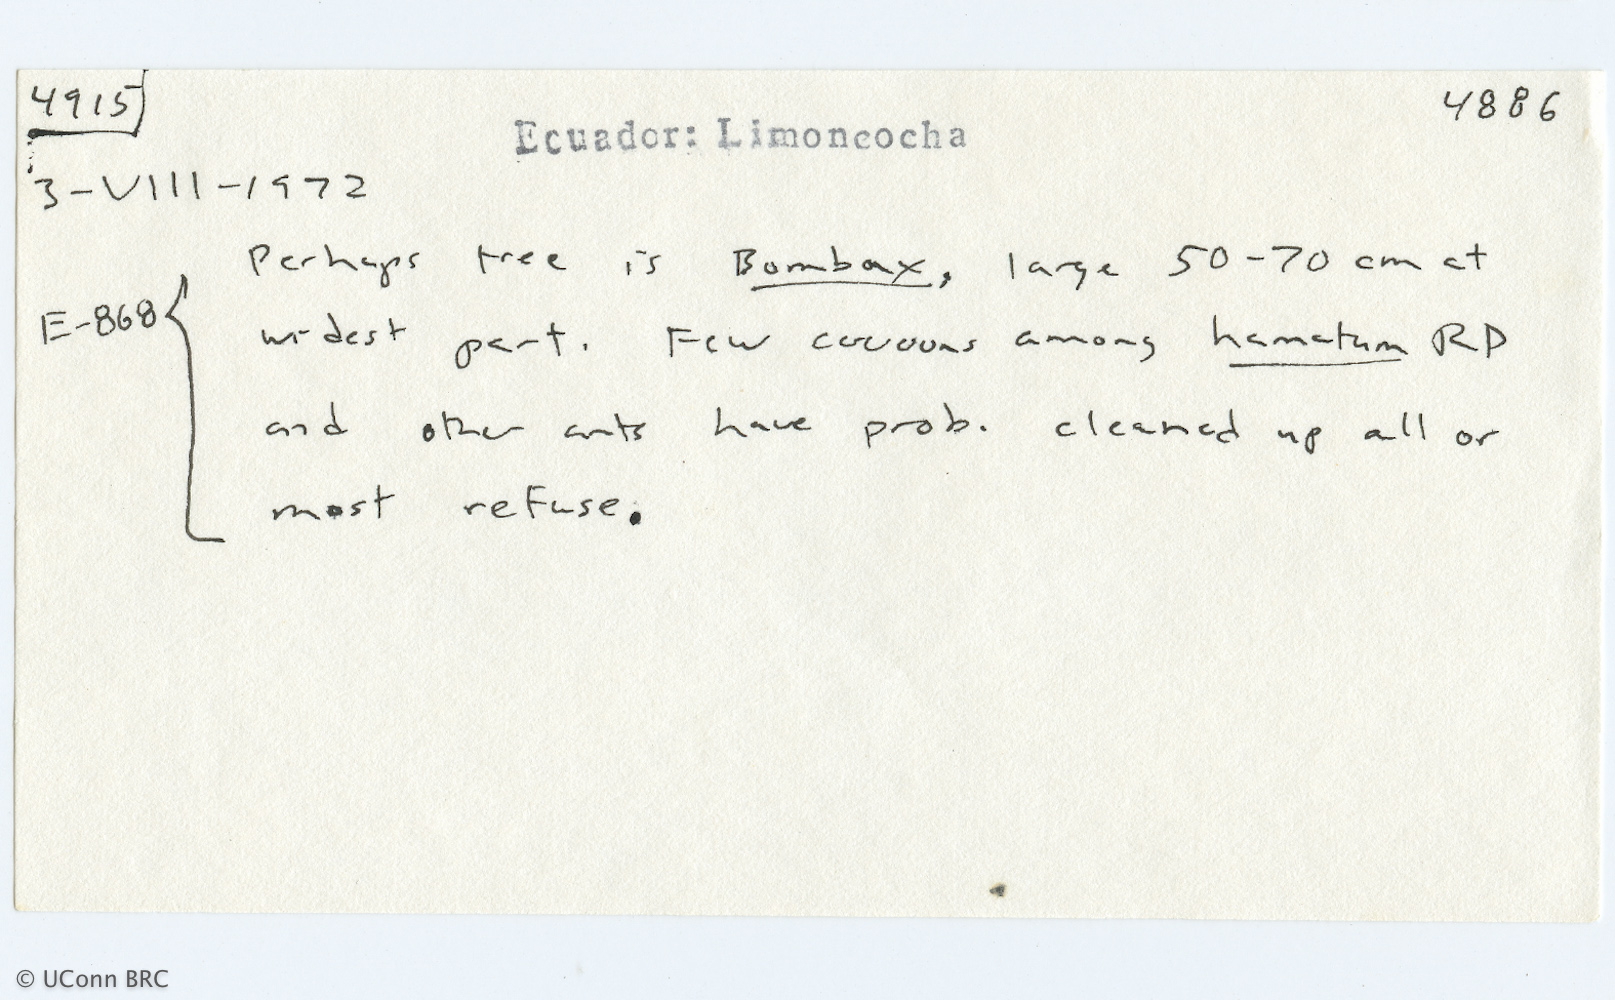 4915
4886
Ecuador: Limoncocha
3-VIII-1972
Perhaps tree is Bombax, large 50-70 cm at
E-868
widest part. Few cocoons among hamatum RD
and other ants have prob. cleaned up all or
most refuse.
© UConn BRC